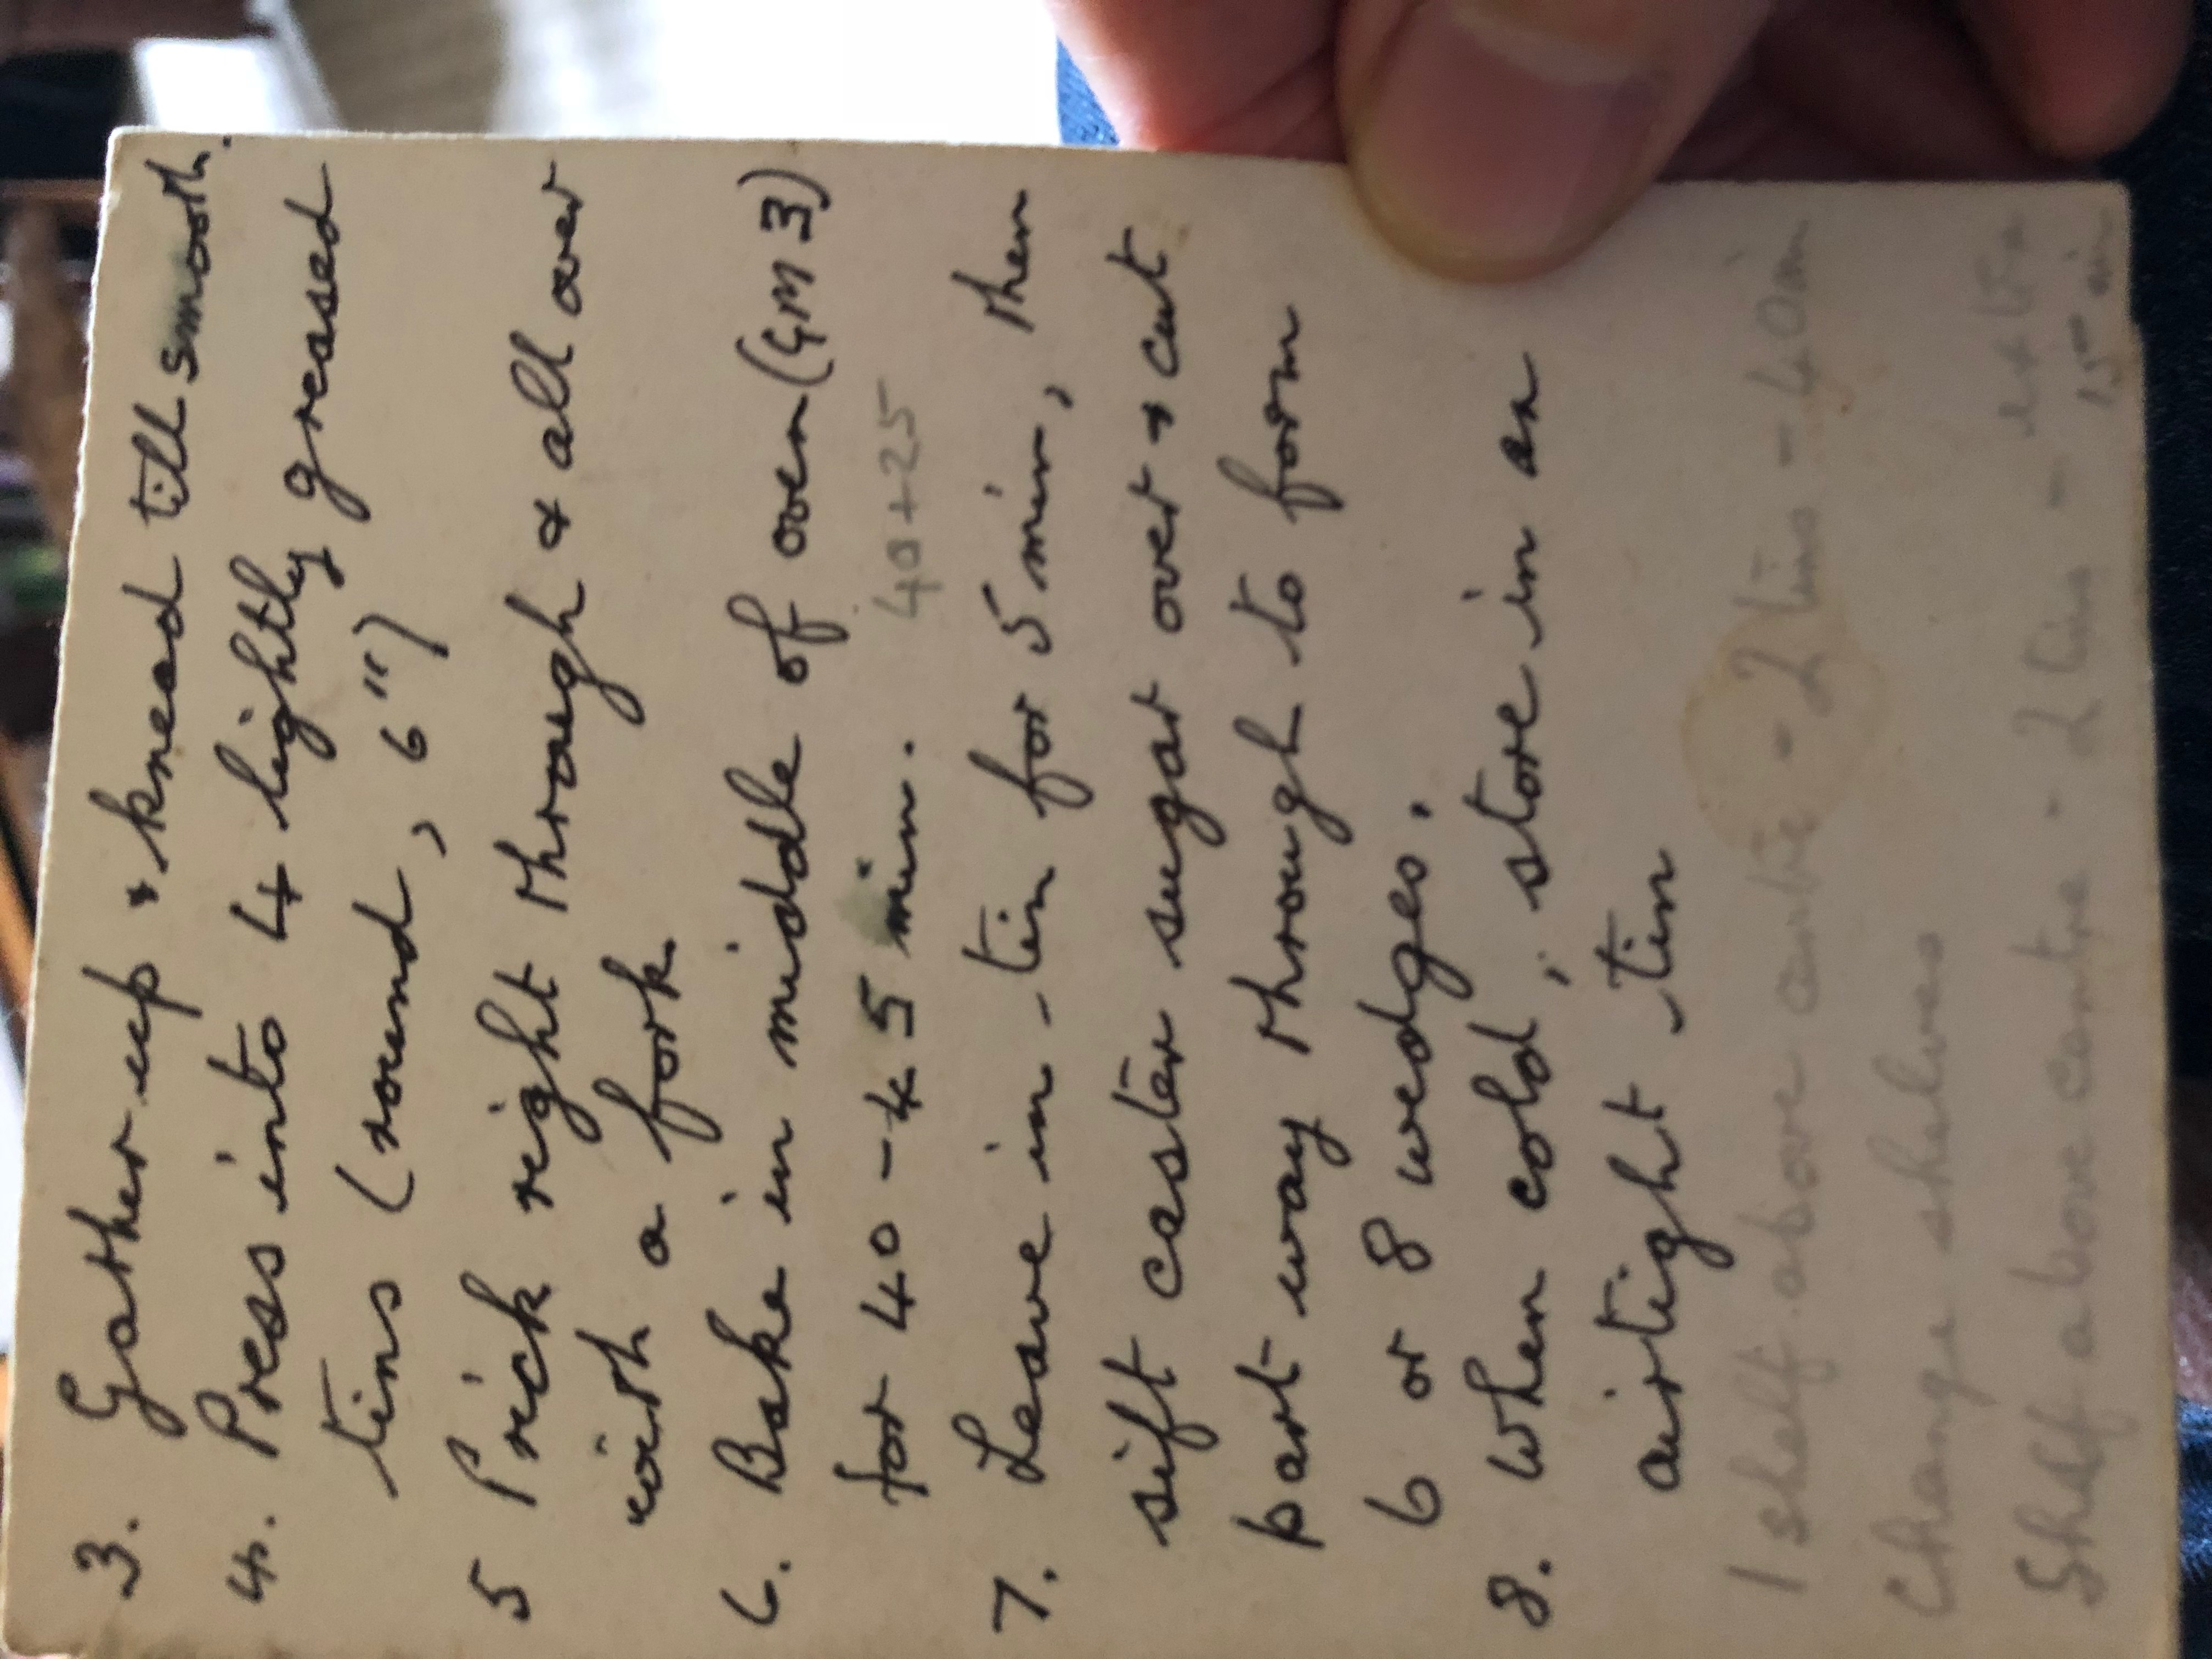 3. Gather up & knead till smooth.
4. Press into 4 lightly greased
tins (round, 6")
5 Prick right through & all over
with a fork
6. Bake in middle of oven (GM 3)
for 40 - 45 min. 40+25
7. Leave in tin for 5 min, then
sift caster sugar over & cut
part way through to form
6 or 8 wedges.
8. When cold, store in an
airtight tin
1 shelf above centre - 2 tins - 40 min
Change shelves
Shelf above centre - 2 tins - extra
15 min